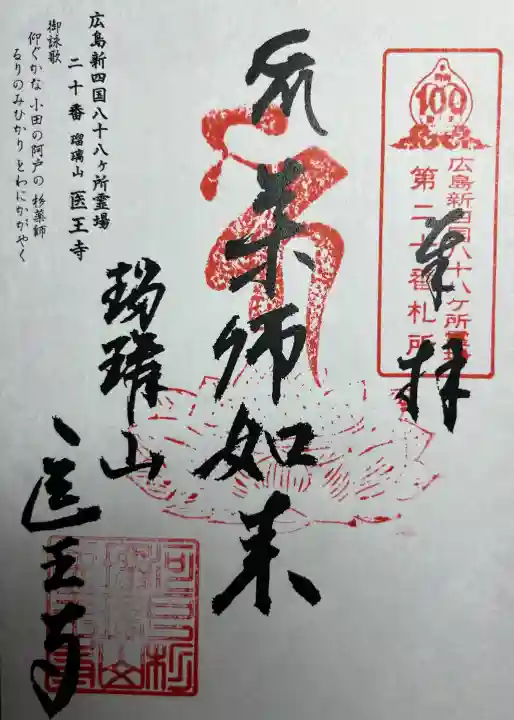 100
広島新四国八十八ヶ所霊場
第二十番札所
奉拝
薬師如来
瑠璃山
医王寺
広島新四国八十八ヶ所霊場
二十番 瑠璃山 医王寺
御詠歌
仰ぐかな 小田の阿戸の 杉薬師
るりのみひかり とわにかがやく